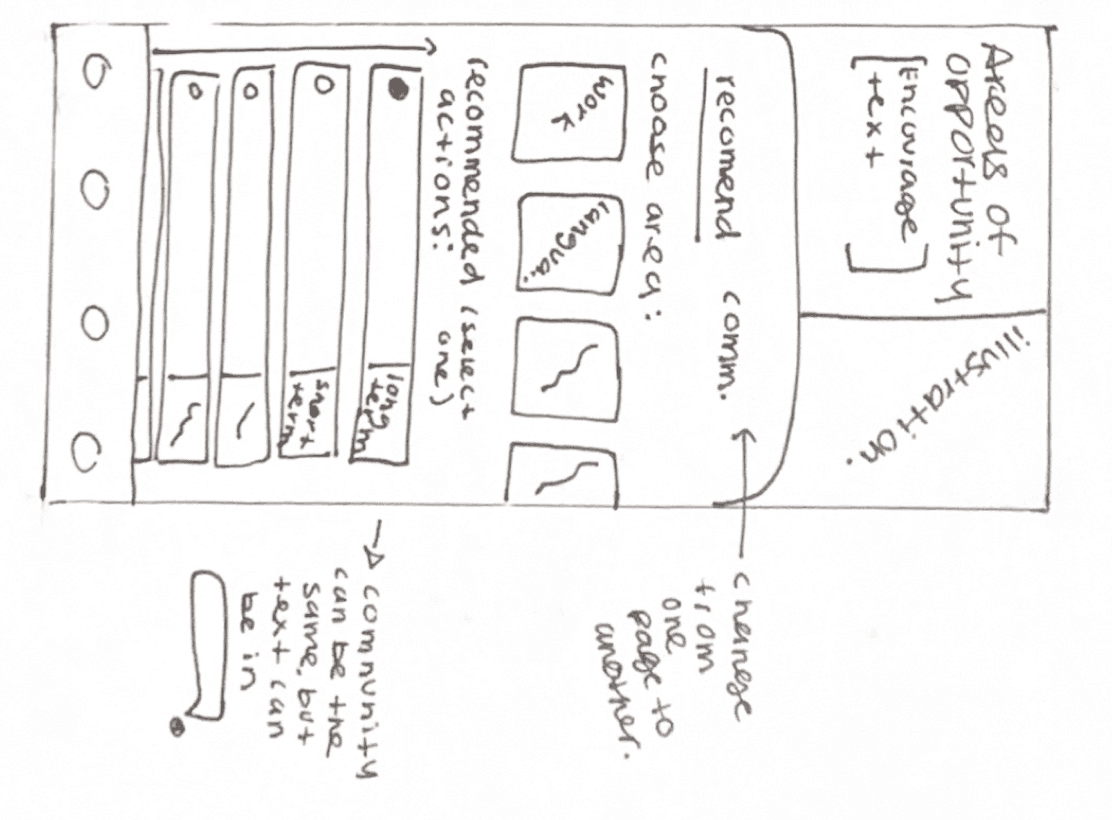 Areas of
opportunity
[Encourage
text]
illustration.
recomend comm.
choose area:
work
langua.
recommended (select
actions: one)
long
term
short
term
change
from
one
page to
another.
→ community
can be the
same, but
text can
be in